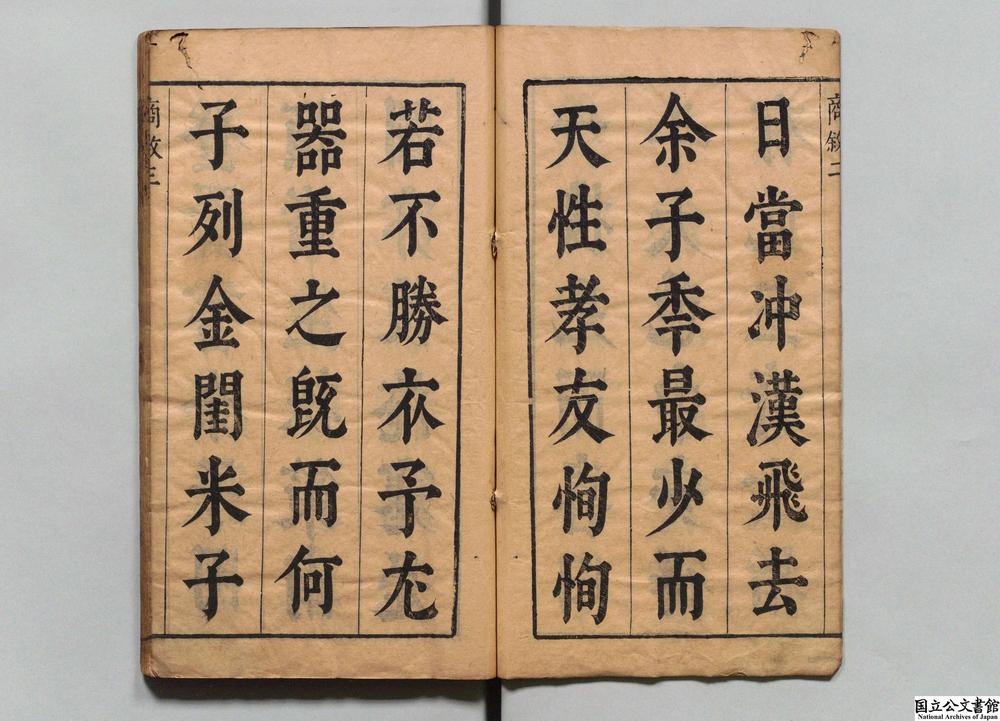 日當冲漢飛去
余子秊最少而
天性孝友恂恂
若不勝衣予尤
器重之既而何
子列金閨米子
商敘二
商敘三
国立公文書館
National Archives of Japan